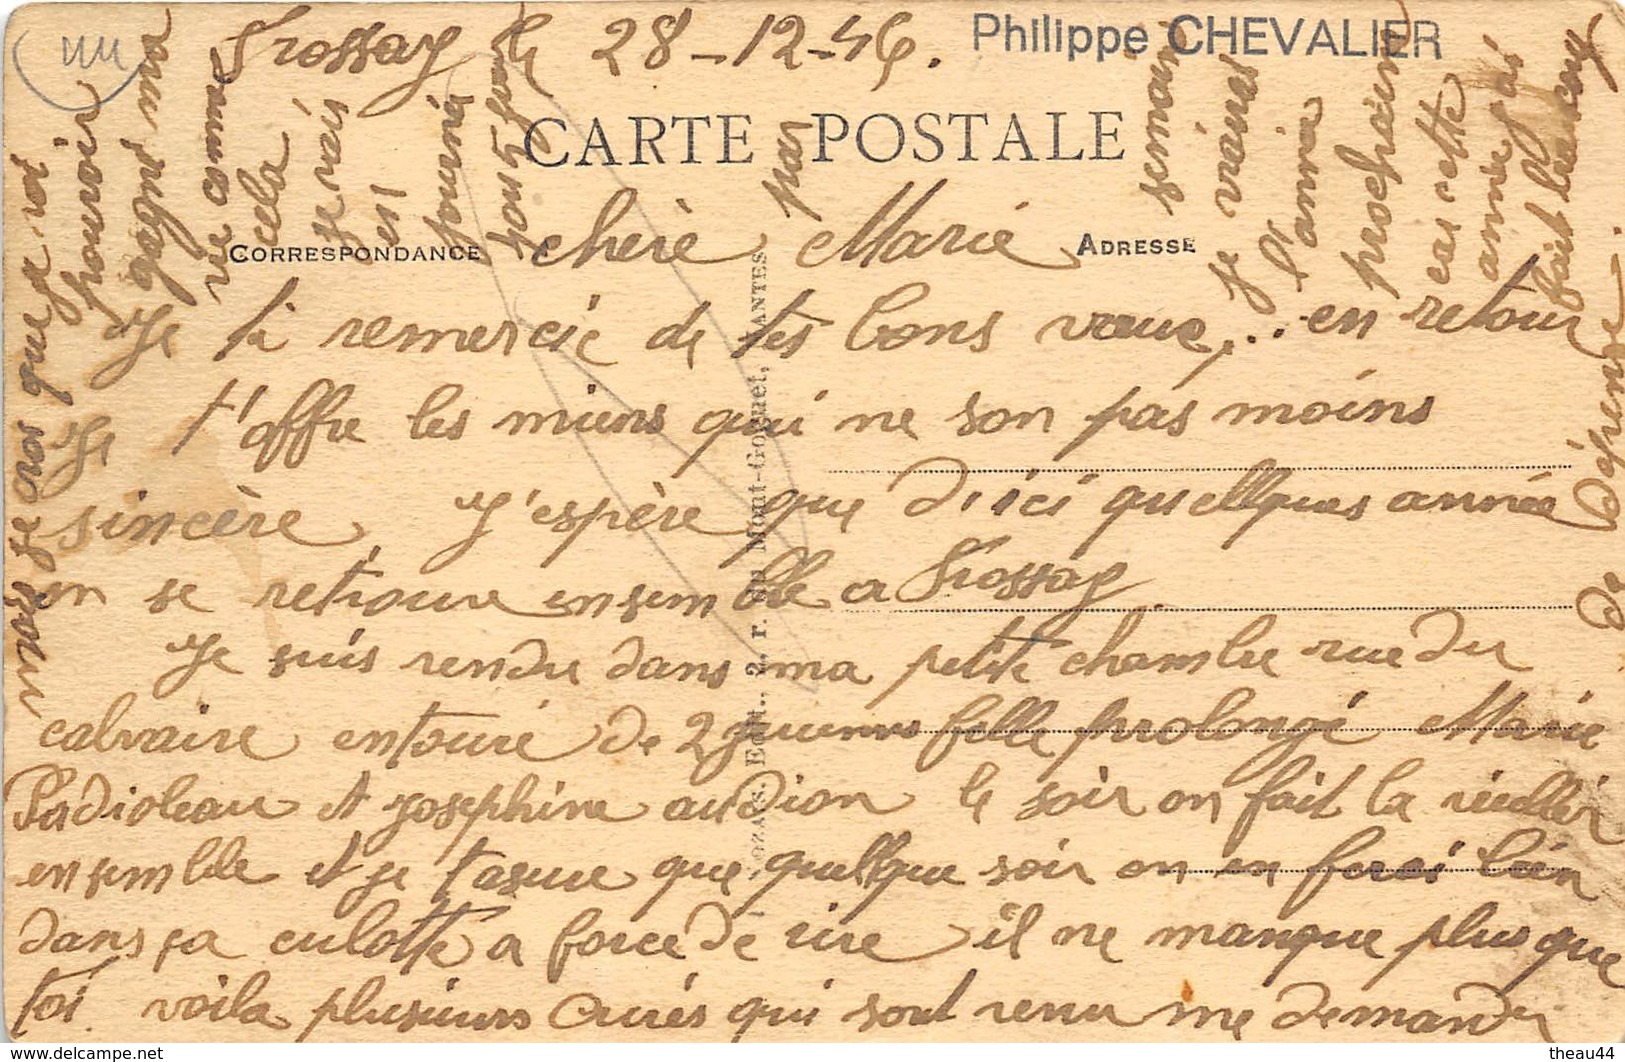 Frossay le 28-12-46.
Philippe CHEVALIER
CARTE POSTALE
CORRESPONDANCE
ADRESSE
Chère Marie
Je te remercie de tes bons vœux, .. en retour
Je t'offre les miens qui ne son pas moins
sincère J'espère que d'ici quellques année
on se retrouve ensemble a Frossay
Je suis rendu dans ma petite chambre rue du
calvaire entouré de 2 jeunes fille prolongé Marie
Padioleau et Josephine audion le soir on fait la veillér
ensemble et je t'asure que quellque soir on en ferai bien
dans ça culotte a force de rire il ne manque plus que
toi. voila plusieurs Curés qui sont venu me demander
mais je crois que je
pouvoir
cela
je vais
en
par
semaine
je viens
l'année
prochaine
car cette
année j'ai
fait beaucoup
de dépense.
Edit., 2, r. du Mont-Goguet, NANTES
theau44